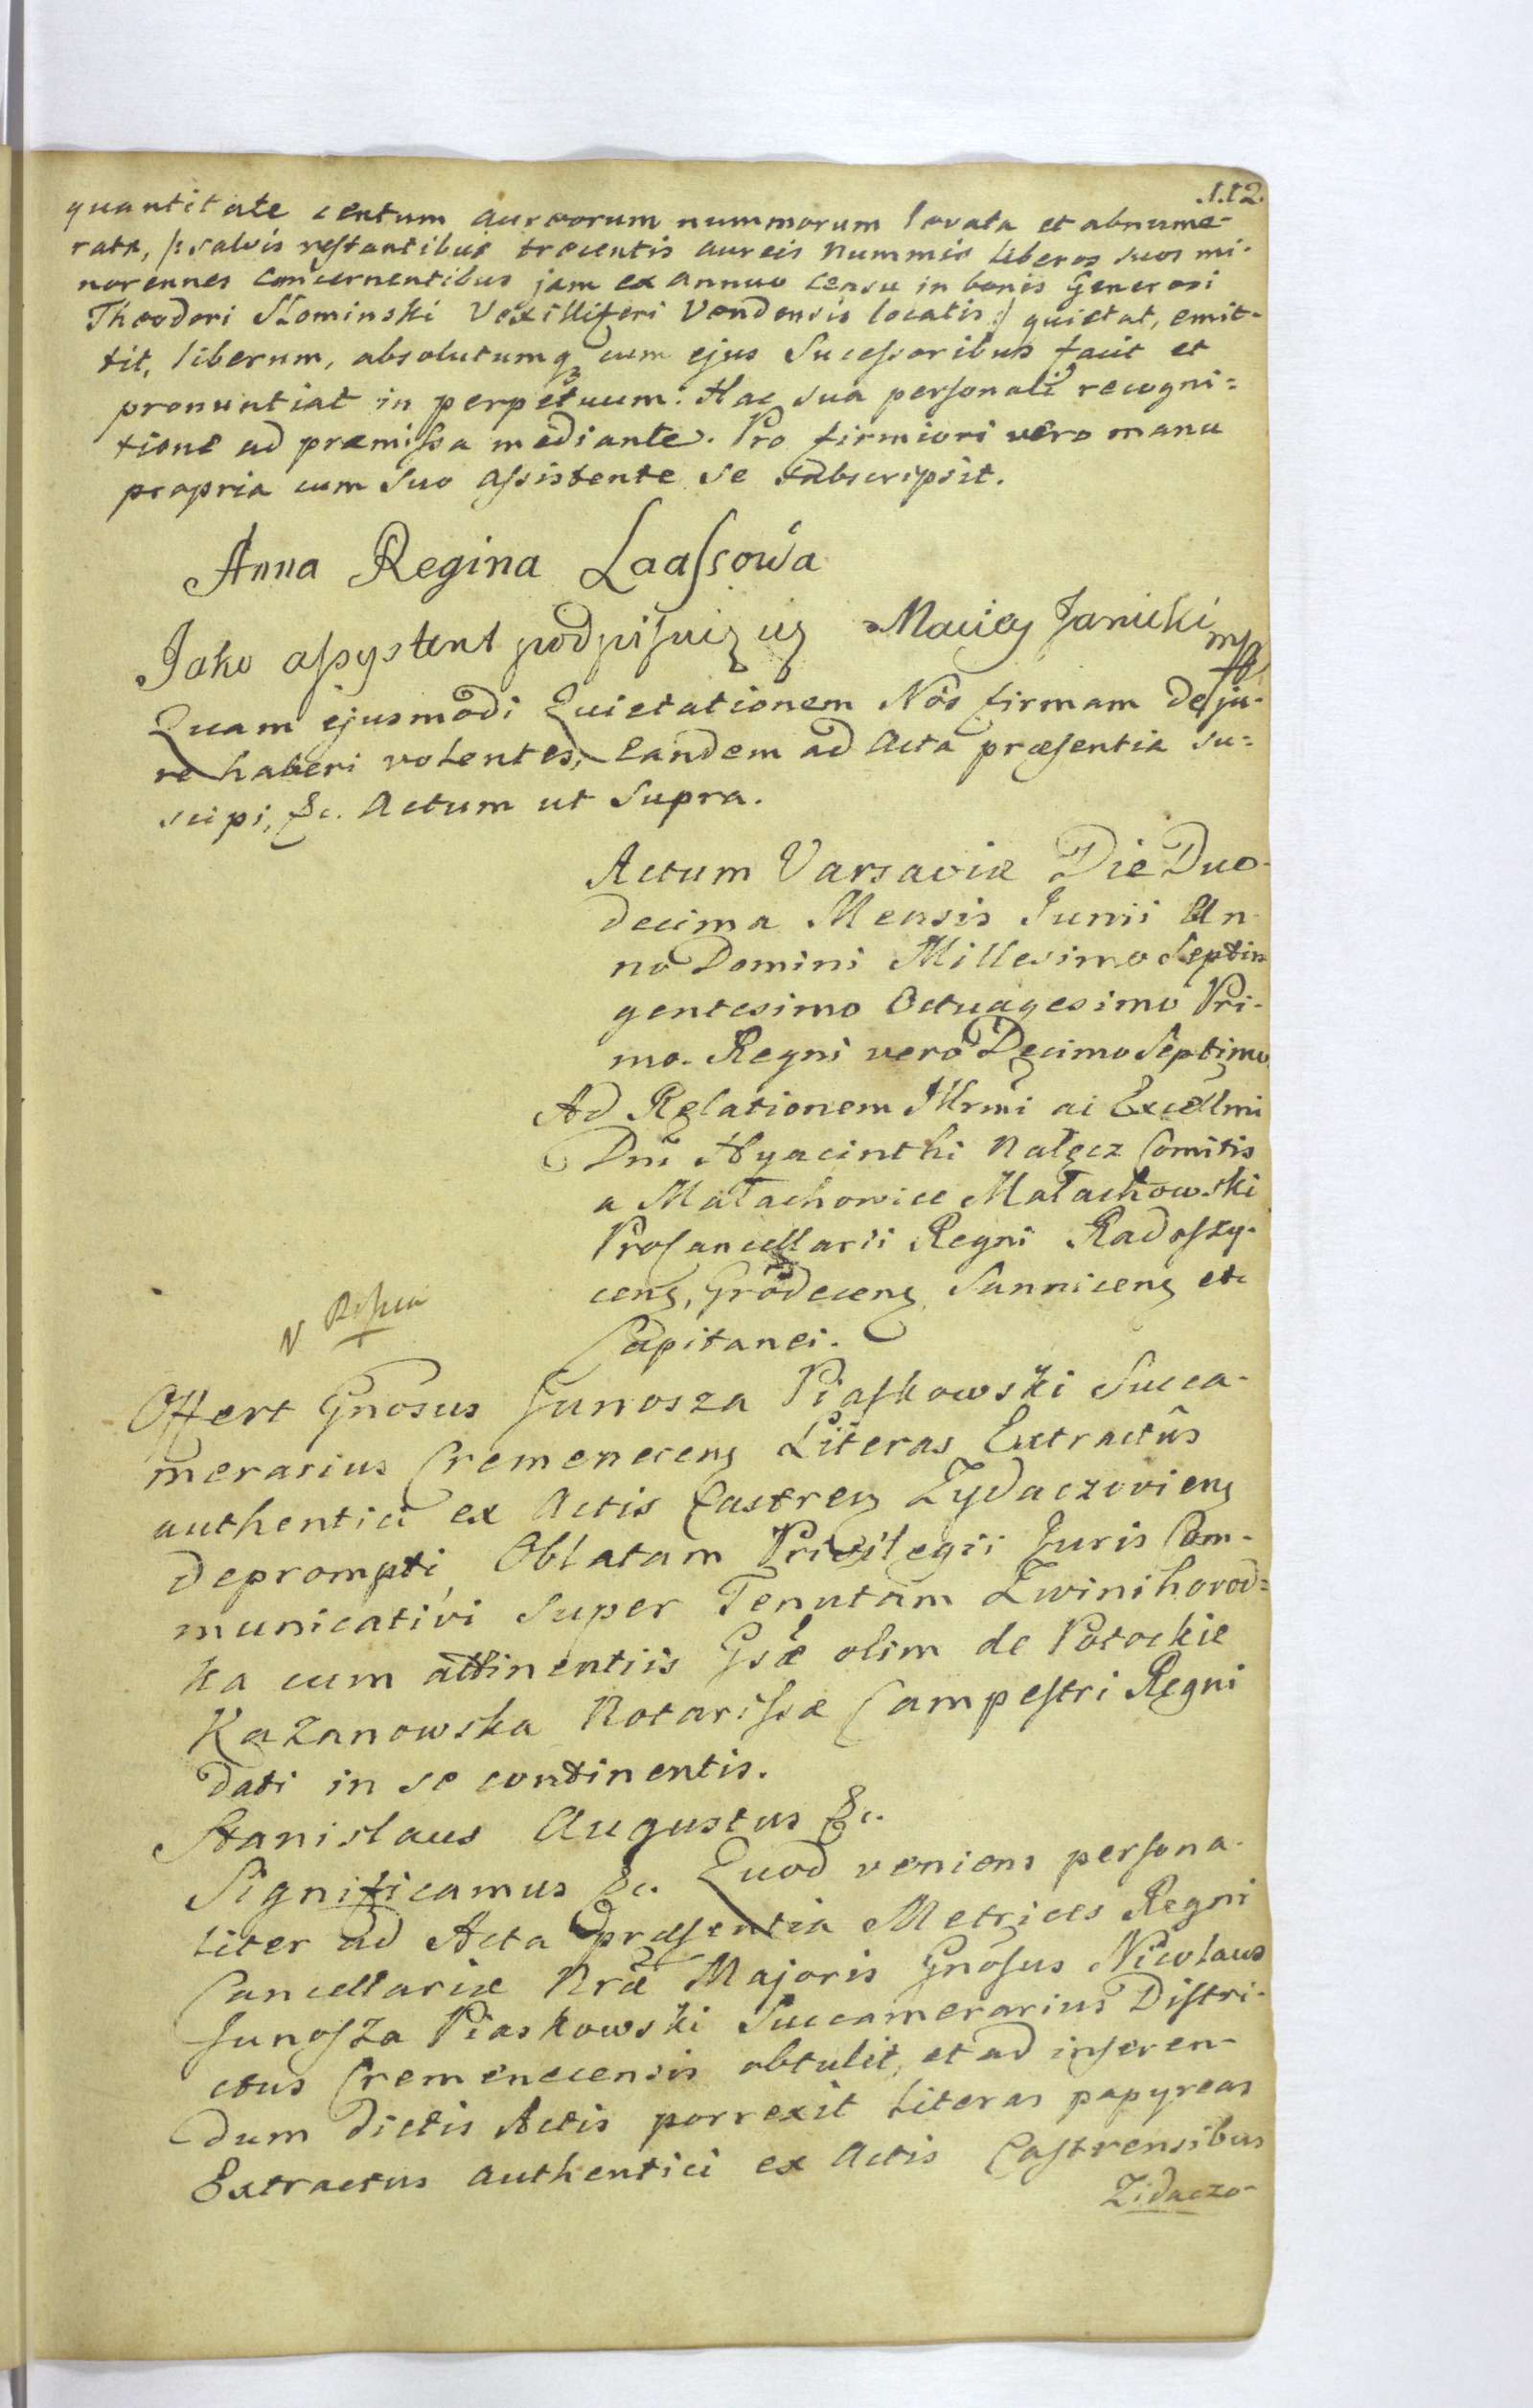 112.
quantitate centum aureorum nummorum levata et abnume-
rata, /: salvis restantibus trecentis aureis nummis liberos suos mi-
norennes concernentibus jam ex annuo censu in bonis Generosi
Theodori Słominski Vexilliferi Vendensis locatis :/ quietat, emit-
tit, liberum, absolutumq3 cum ejus Sucessoribus facit et
pronuntiat in perpetuum: Hac sua personali recogni=
tione ad præmissa mediante. Pro firmiori vero manu
propria cum Suo Assistente se subscripsit.
Anna Regina Laassowa
Jako assystent podpisuię się Maciey Janicki mp
Quam ejusmodi Quietationem Nos firmam de ju-
re haberi volentes, Eandem ad Acta præsentia su=
scipi, &c. Actum ut Supra.
Actum Varsaviæ Die Duo-
decima Mensis Junii An-
no Domini Millesimo Septin
gentesimo Octuagesimo Pri-
mo. Regni vero Decimo Septimo
Ad Relationem Illrmi ac Excellmi
Dni Hyacinthi Nałęcz Comitis
a Małachowice Małachowski
ProCancellarii Regni Radoszy-
cens, Grodecens Sannicens etc
Capitanei.
Offert Gnosus Junosza Piaskowski Succa-
merarius Cremenecens Literas Extractûs
authentici ex Actis Castren Zydaczoviens
deprompti, Oblatam Privilegii Juris Com-
municativi super Tenutam Zwinihorod=
ka cum attinentiis Gsæ olim de Potockie
Kazanowska Notarissæ Campestri Regni
dati in se continentis.
Stanislaus Augustus &c.
Significamus &c. Quod veniens persona-
liter ad Acta præsentia Metrices Regni
Cancellariæ Nræ Majoris Gnosus Nicolaus
Junosza Piaskowski Succamerarius Distri-
ctus Cremenecensis obtulit, et ad inseren-
dum dictis Actis porrexit Literas papyreas
Extractus authentici ex Actis Castrensibus
Zidaczo-